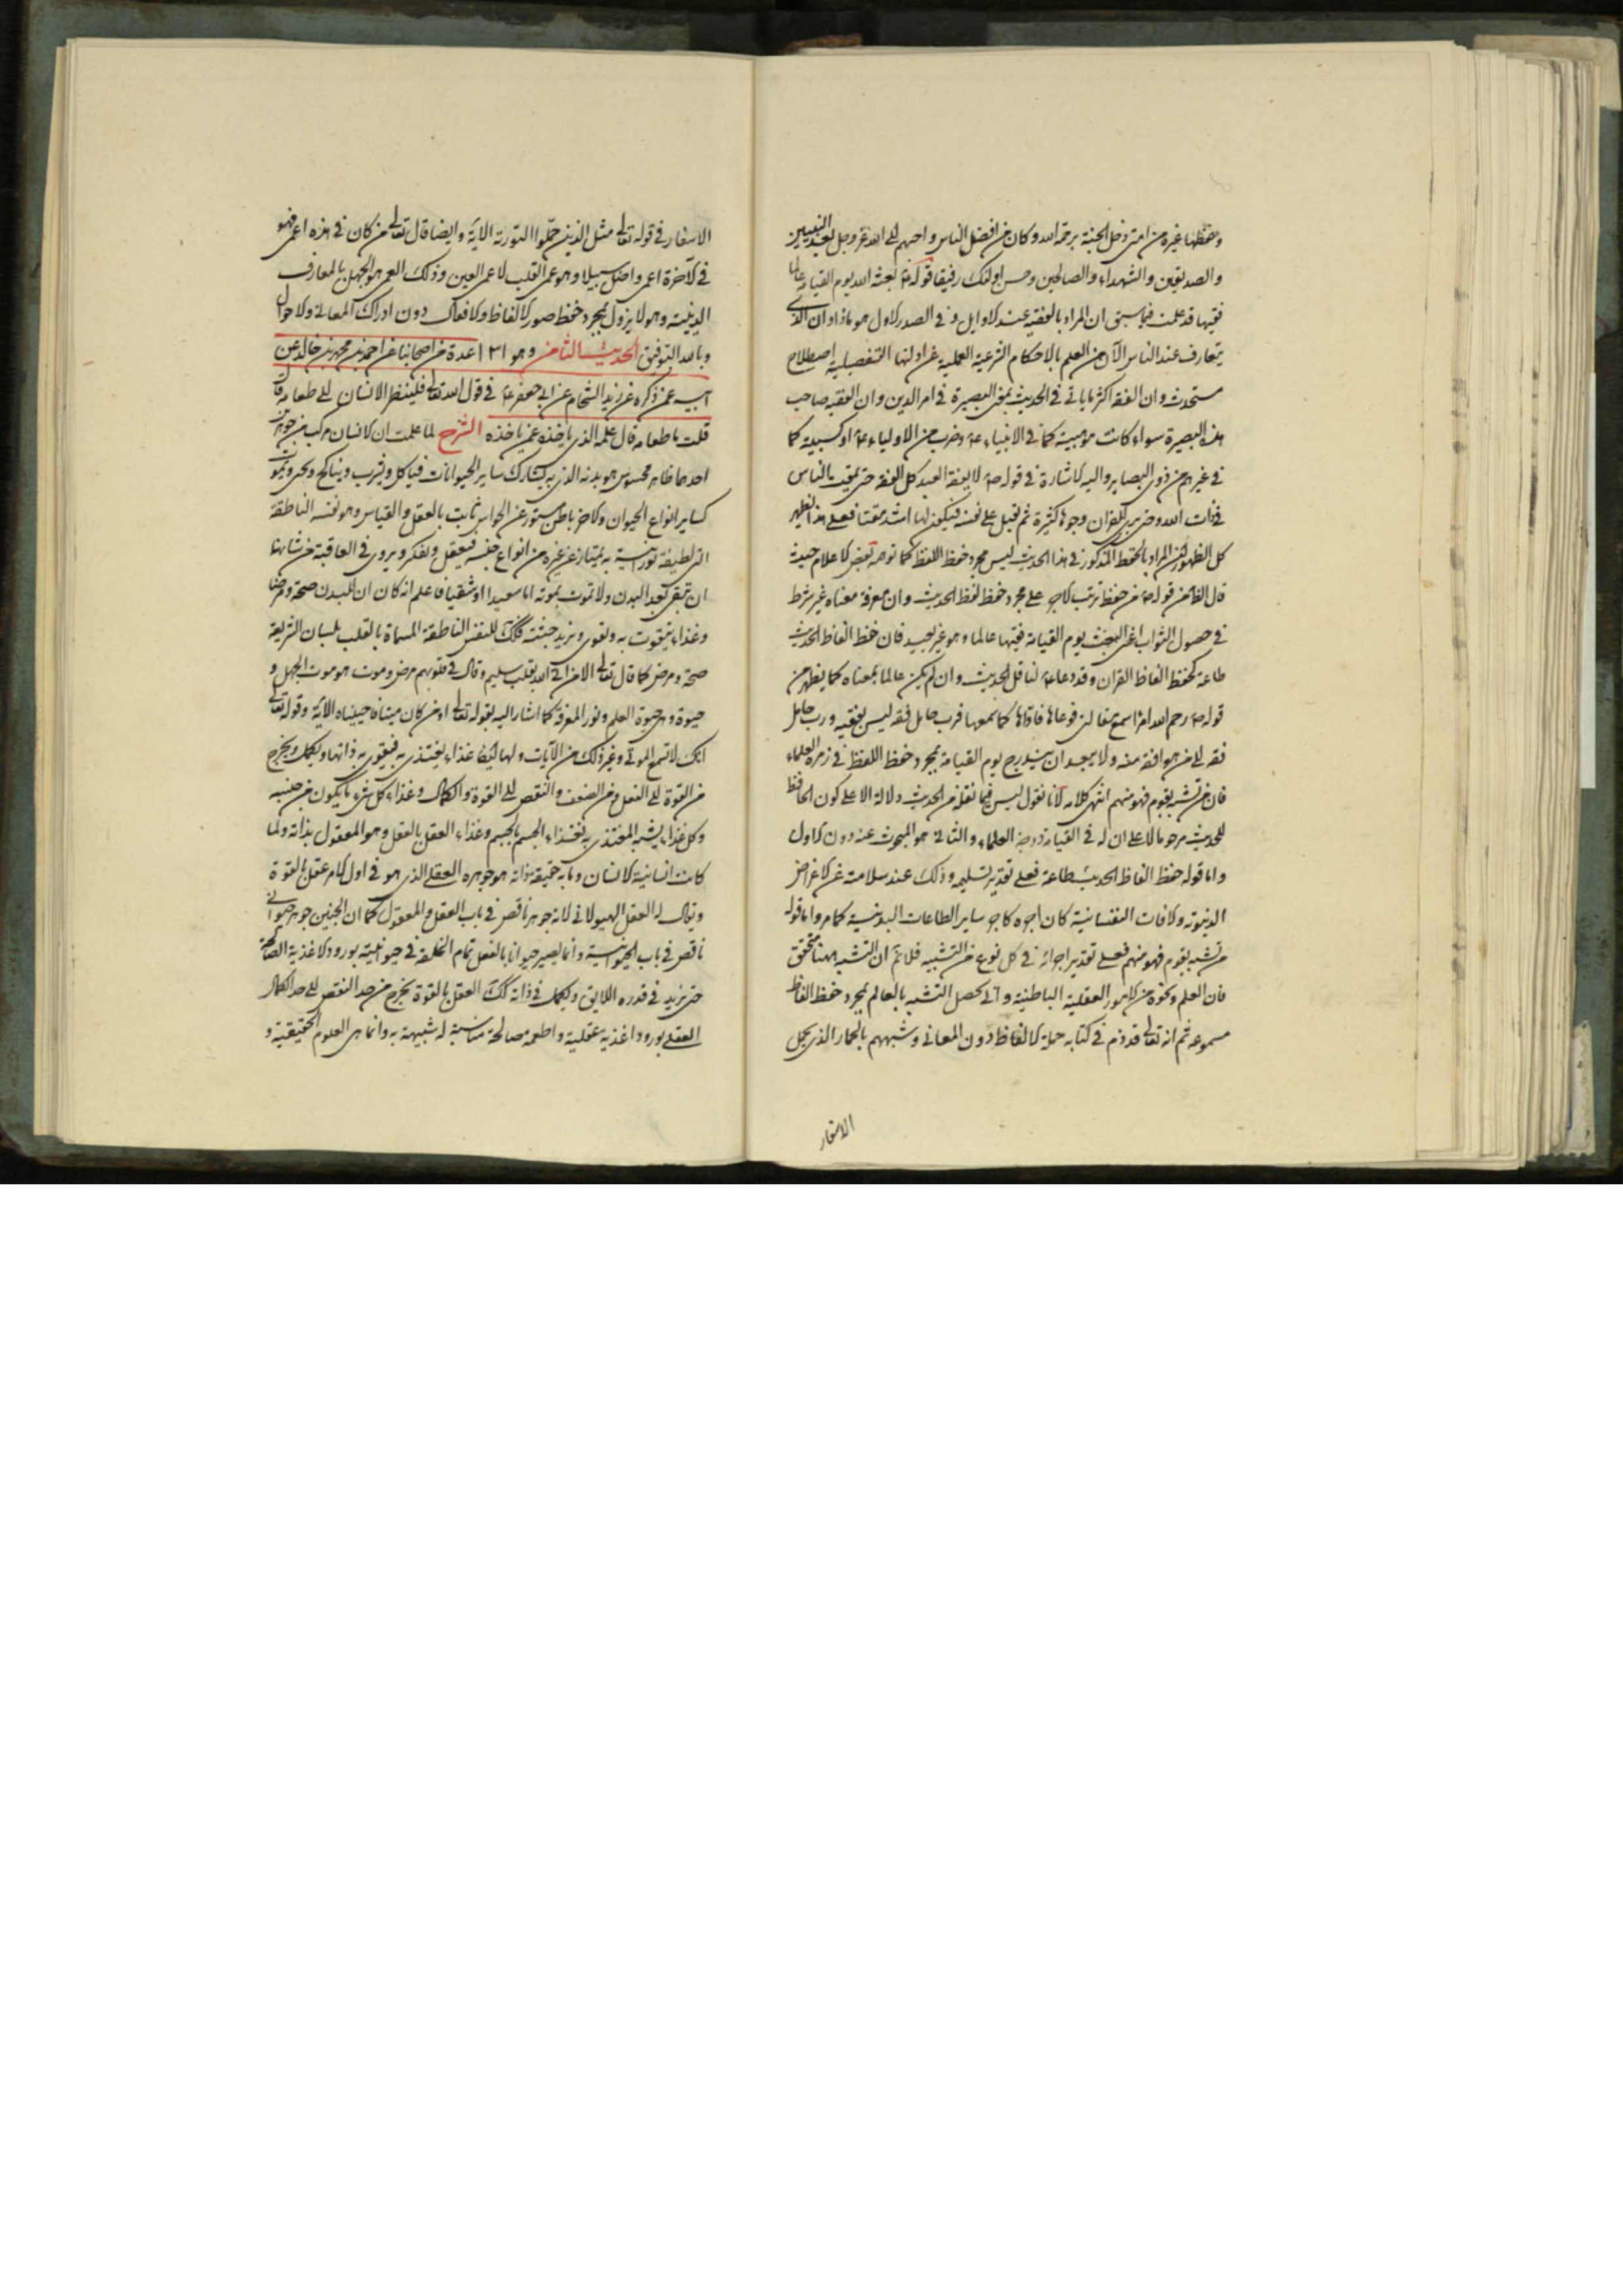 وحفظها غيره من امتى دخل الجنة برحمة الله وكان من افضل الناس واحبهم الى الله عز وجل بعد النبيين
والصديقين والشهداء والصالحين وحسن اولئك رفيقا قوله ع بعثه الله يوم القيامة عالما
فقيها قد علمت فيما سبق ان المراد بالفقيه عند الاوايل وفى الصدر الاول هو ماذا وان الذى
يتعارف عند الناس الآن من العلم بالاحكام الشرعية العملية عن ادلتها التفصيلية اصطلاح
مستحدث وان الفقه اكثر ما ياتى فى الحديث بمعنى البصيرة فى امر الدين وان الفقيه صاحب
هذه البصيرة سواء كانت موهبية كما فى الانبياء ع وضرب من الاولياء ع او كسبية كما
فى غيرهم من ذوى البصاير واليه الاشارة فى قوله ص لا يفقه العبد كل الفقه حتى يمقت الناس
فى ذات الله وحتى يرى للقران وجوها كثيرة ثم يقبل على نفسه فيكون لها اشد مقتا فعلى هذا ظهر
كل الظهور ان المراد بالحفظ المذكور فى هذا الحديث ليس مجرد حفظ اللفظ كما توهمه بعض الاعلام حيث
قال الظاهر من قوله ص من حفظ ترتب الاجر على مجرد حفظ لفظ الحديث وان معرفة معناه غير شرط
فى حصول الثواب اعنى البعث يوم القيامة فقيها عالما وهو غير بعيد فان حفظ الفاظ الحديث
طاعة كحفظ الفاظ القران وقد دعا ع لناقل الحديث وان لم يكن عالما بمعناه كما يظهر من
قوله ص رحم الله امرا سمع مقالتى فوعاها فاداها كما سمعها فرب حامل فقه ليس بفقيه ورب حامل
فقه الى من هو افقه منه ولا يبعد ان يندرج يوم القيامة بمجرد حفظ اللفظ فى زمرة العلماء
فان من تشبه بقوم فهو منهم انتهى كلامه لانا نقول ليس فيما نقله من الحديث دلالة الا على كون الحافظ
للحديث مرحوما لا على ان له فى القيامة درجة العلماء والثانى هو المبحوث عنه دون الاول
واما قوله حفظ الفاظ الحديث طاعة فعلى تقدير تسليمه وذلك عند سلامته عن الاغراض
الدنيوية والافات النفسانية كان اجره كاجر ساير الطاعات البدنية كما مر واما قوله
من تشبه بقوم فهو منهم فعلى تقدير اجرائه فى كل نوع من التشبيه فلا نم ان التشبه ههنا متحقق
فان العلم ونحوه من الامور العقلية الباطنية وانى يحصل التشبه بالعالم بمجرد حفظ الفاظ
مسموعة ثم انه تعالى قد ذم فى كتابه حملة الالفاظ دون المعانى وشبههم بالحمار الذى يحمل
الاسفار
الاسفار فى قوله تعالى مثل الذين حملوا التورية الاية وايضا قال تعالى من كان فى هذه اعمى فهو
فى الآخرة اعمى واضل سبيلا وهو عمى القلب لا عمى العين وذلك العمى هو الجهل بالمعارف
الدينية وهو لا يزول بمجرد حفظ صور الالفاظ والافعال دون ادراك المعانى والاحوال
وبالله التوفيق الحديث الثامن وهو ١٣١ عدة من اصحابنا عن احمد بن محمد بن خالد عن
ابيه عمن ذكره عن زيد الشحام عن ابى جعفر ع فى قول الله تعالى فلينظر الانسان الى طعامه قال
قلت ما طعامه قال علمه الذى ياخذه عمن ياخذه الشرح لما علمت ان الانسان مركب من جوهرين
احدهما ظاهر محسوس هو بدنه الذى به يشارك ساير الحيوانات فياكل ويشرب وينكح ويحيى ويموت
كساير انواع الحيوان والاخر باطن مستور عن الحواس ثابت بالعقل والقياس وهو نفسه الناطقة
التى لطيفة نورانية به يمتاز عن غيره من انواع جنسه فيعقل ويفكر ويروى فى العاقبة من شانها
ان تبقى بعد البدن ولا تموت بموته اما سعيدا او شقيا فاعلم انه كان ان للبدن صحة ومرضا
وغذاء يتقوت به ويقوى ويزيد جثته فكك للنفس الناطقة المسماة بالقلب بلسان الشريعة
صحة ومرض كما قال تعالى الا من اتى الله بقلب سليم وقال فى قلوبهم مرض وموت هو موت الجهل و
حيوة وهى حيوة العلم ونور المعرفة كما اشار اليه بقوله تعالى او من كان ميتا فاحييناه الاية وقوله تعالى
انك لا تسمع الموتى وغير ذلك من الآيات ولها ايضا غذاء يغتذى به فيتقوى به ذاتها ويكمل ويخرج
من القوة الى الفعل ومن الضعف والنقص الى القوة والكمال وغذاء كل شىء ما يكون من جنسه
وكل غذاء يشبه المغتذى به فغذاء الجسم بالجسم وغذاء العقل بالعقل وهو المعقول بذاته ولما
كانت انسانية الانسان وما به حقيقة ذاته هو جوهره العقلى الذى هو فى اول الامر عقل بالقوة
ويقال له العقل الهيولانى لانه جوهر ناقص فى باب العقل والمعقول كما ان الجنين جوهر حيوانى
ناقص فى باب الحيوانية وانما يصير حيوانا بالفعل تمام الخلقة فى حيوانيته بورود الاغذية الصالحة
حتى يزيد فى قدره اللايق ويكمل فى ذاته كك العقل بالقوة يخرج من حد النقص الى حد الكمال
العقلى بورود اغذية عقلية واطعمة صالحة مناسبة له شبيهة به وانما هى العلوم الحقيقية و